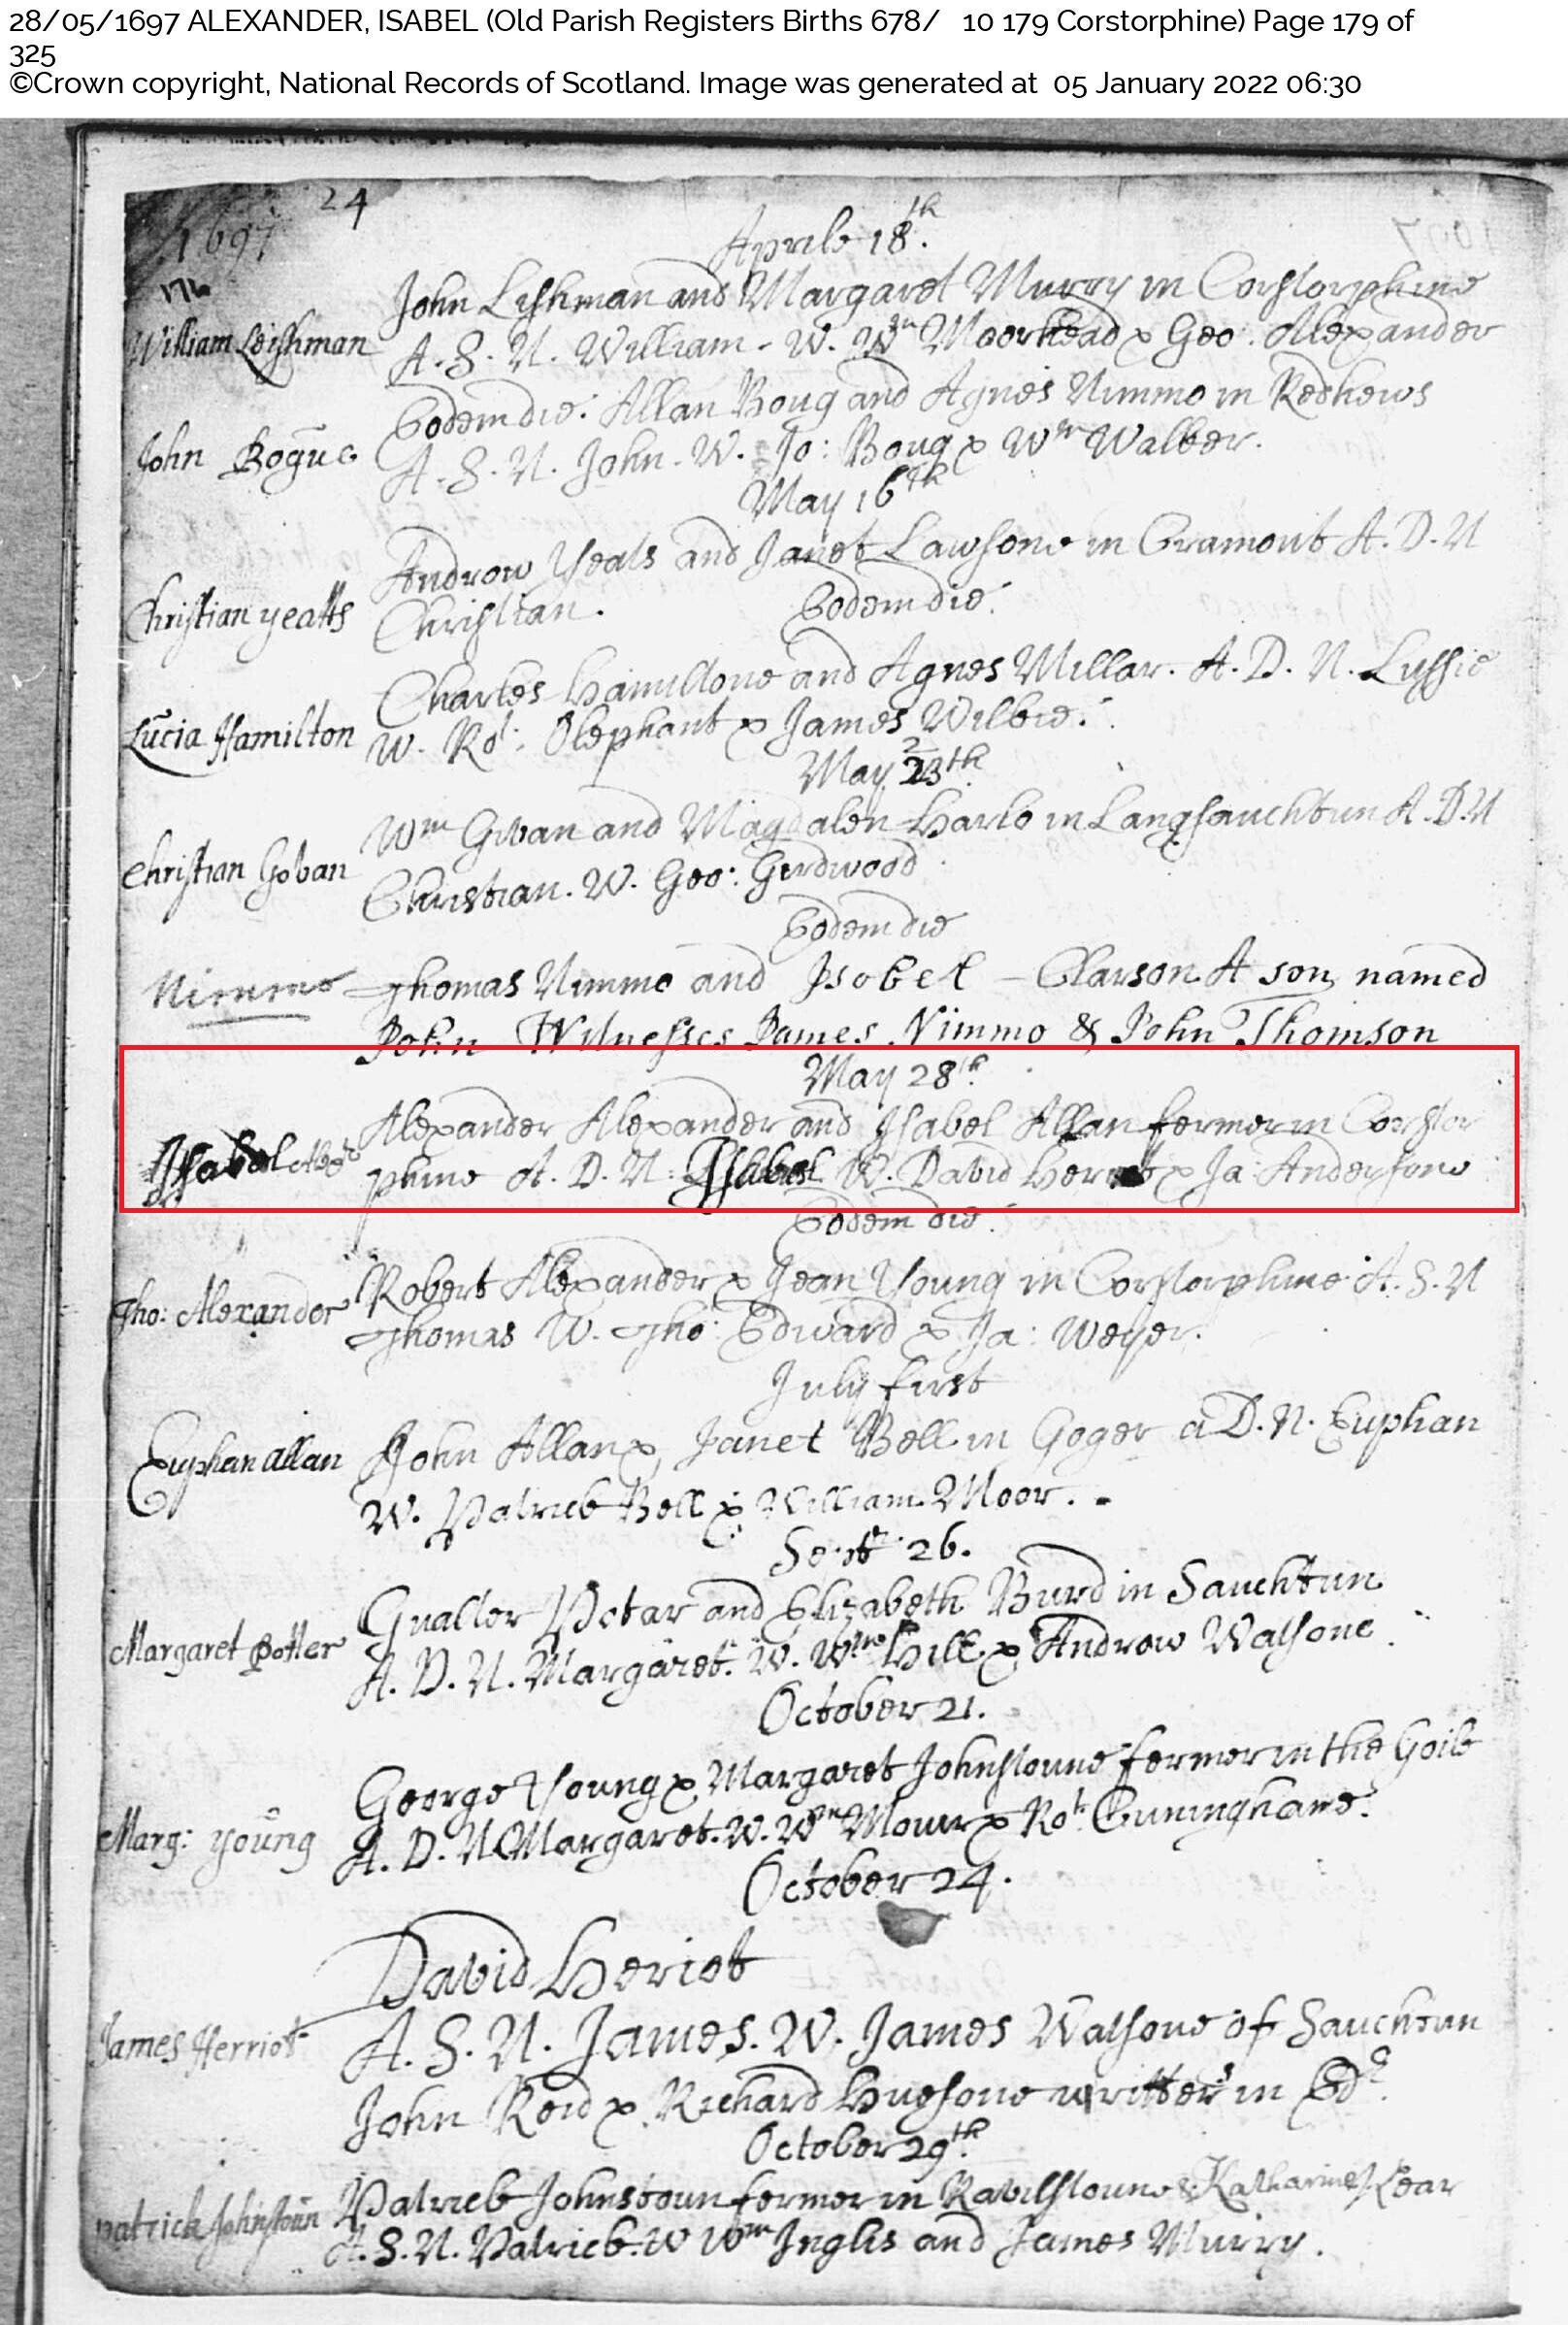 28/05/1697 ALEXANDER, ISABEL (Old Parish Registers Births 678/ 10 179 Corstorphine) Page 179 of
325
©Crown copyright, National Records of Scotland. Image was generated at 05 January 2022 06:30
24
1697
Aprile 18th.
John Lishman and Margaret Murry in Corstorphine
William Leishman
A. S. N. William. W. Wm Moorhead & Geo: Alexander
Eodem die. Allan Boug and Agnes Nimmo in Redhews
John Bogue
A. S. N. John. W. Jo: Boug & Wm Walker.
May 16th
Andrew Yeats and Janet Lawsone in Cramont A. D. N
Christian yeatts
Christian.
Eodem die.
Charles Hamiltone and Agnes Millar. A. D. N. Lussie
Lucia Hamilton
W. Rot: Olephant & James Wilkie.
May 23th
Wm Gvan and Magdalen Harlo in Langsauchtun A. D. N
Christian Govan
Christian. W. Geo: Girdwood
Eodem die
Nimmo
Thomas Nimmo and Isobel Clarson A son named
John Witnesses James Nimmo & John Thomson
May 28th
Alexander Alexander and Isabel Allan fermer in Corstor
Isabel
phine A. D. N: Isabel W. David & Ja: Andersone
Eodem die.
Robert Alexander & Jean Young in Corstorphine A. S. N
Tho: Alexander
Thomas W. Tho: Edward & Ja: Weyer.
July first
John Allan & Janet Bell in Goger a D. N. Euphan
Euphan allan
W. Patrick Bell & William Moor.
Sept 26.
Gualter Potar and Elizabeth Burd in Sauchtun
Margaret Potter
A. D. N. Margaret. W. Wm Hill & Andrew Watsone
October 21.
George Young & Margaret Johnstoune fermer in the Goile
Marg: young
A. D. N Margaret. W. Wm Mouir & Rot Cuninghame.
October 24.
David Heriot
James Herriot
A. S. N. James. W. James Watsone of Sauchtun
John Reid & Richard Huesone writters in Edr.
October 29th.
Patrick Johnstoun fermer in Ravilstoune & Katharine Kear
patrick Johnstoun
A. S. N. Patrick. W Wm Inglis and James Murry.